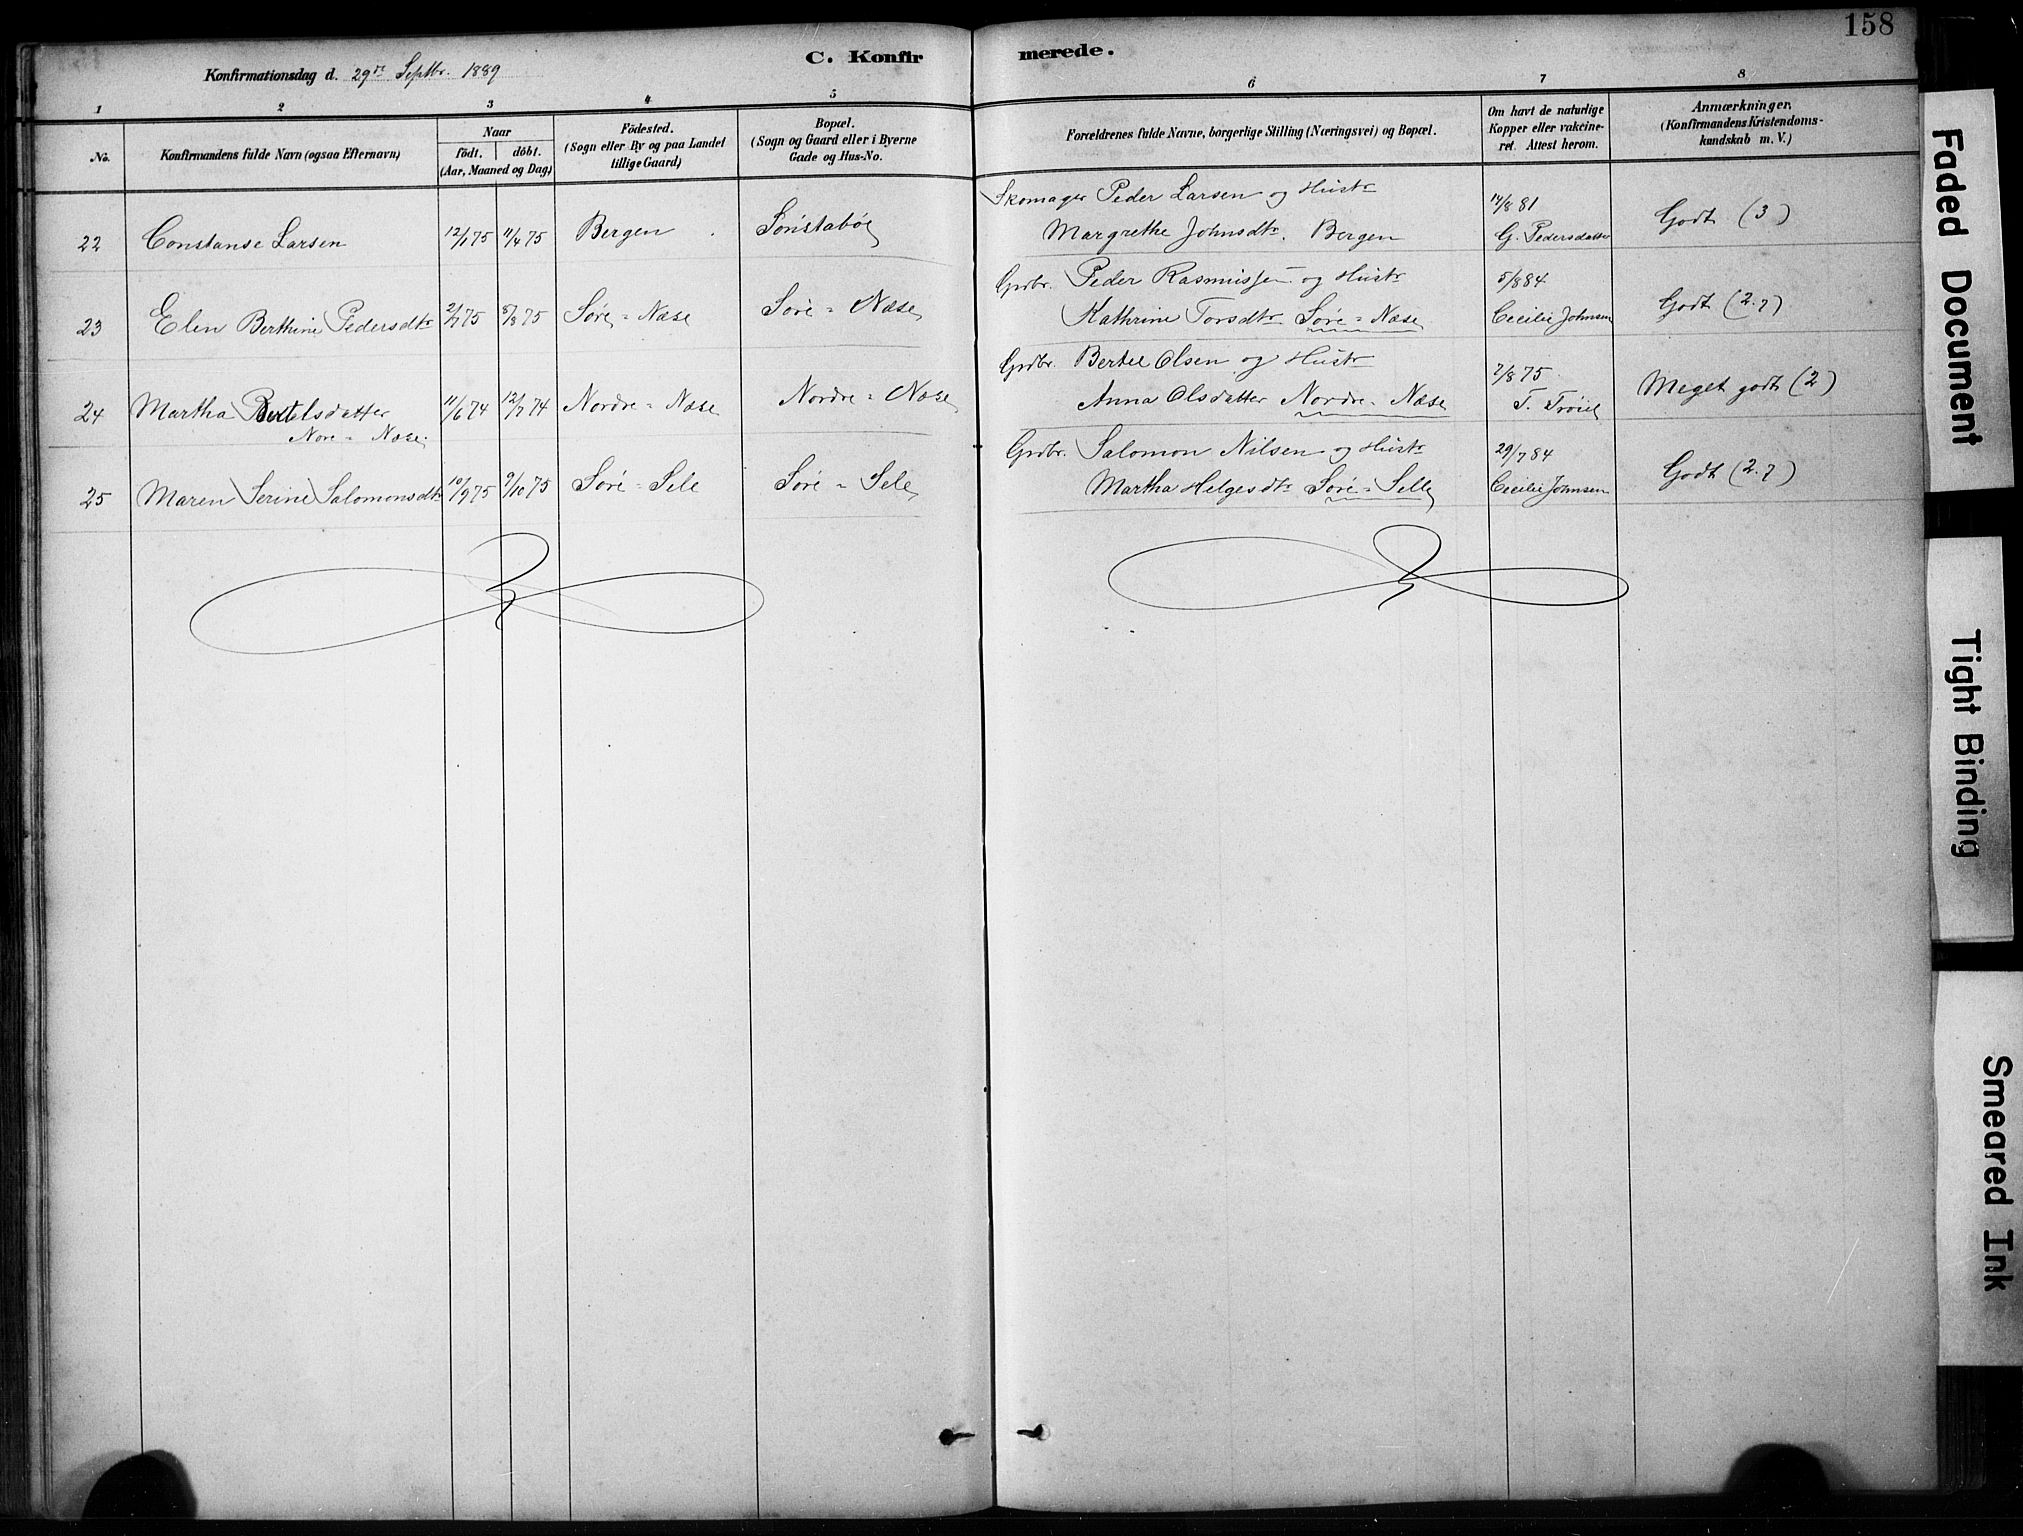 158
C. Konfirmerede.
Konfirmationsdag d. 29de Septbr. 1889
1 2 3 4 5 6 7 8
No.
Konfirmandens fulde Navn (ogsaa Efternavn)
Naar
födt. döbt.
(Aar, Maaned og Dag)
Födested.
(Sogn eller By og paa Landet
tillige Gaard)
Bopæl.
(Sogn og Gaard eller i Byerne
Gade og Hus-No.
Forældrenes fulde Navne, borgerlige Stilling (Næringsvei) og Bopæl.
Om havt de naturlige
Kopper eller vakcine-
ret. Attest herom.
Anmærkninger.
(Konfirmandens Kristendoms-
kundskab m. V.)
Skomager Peder Larsen og Hustr
22 Constanse Larsen 12/1 75 11/4 75 Bergen Sönstabøe Margrethe Johnsdtr. Bergen 14/8 81 G. Pedersdatter Godt (3)
Grdbr. Peder Rasmussen og Hustr
23 Elen Berthine Pedersdtr 2/7 75 8/8 75 Søre = Næse Søre = Næse Kathrine Torsdtr Søre = Næse 5/8 84 Cecilie Johnsen Godt (2.?)
Grdbr. Bertel Olsen og Hustr
24 Martha Bertelsdatter 11/6 74 12/7 74 Nordre = Næse Nordre = Næse Anna Olsdatter Nordre = Næse 7/8 75 T. Trøie Meget godt (2)
Nore = Næse.
Grdbr. Salomon Nilsen og Hustr
25 Maren Serine Salomonsdtr 10/9 75 9/10 75 Søre = Sele Søre = Sele Martha Helgesdtr Søre = Selle 29/7 84 Cecilie Johnsen Godt (2.?)
Faded Document
Tight Binding
Smeared Ink